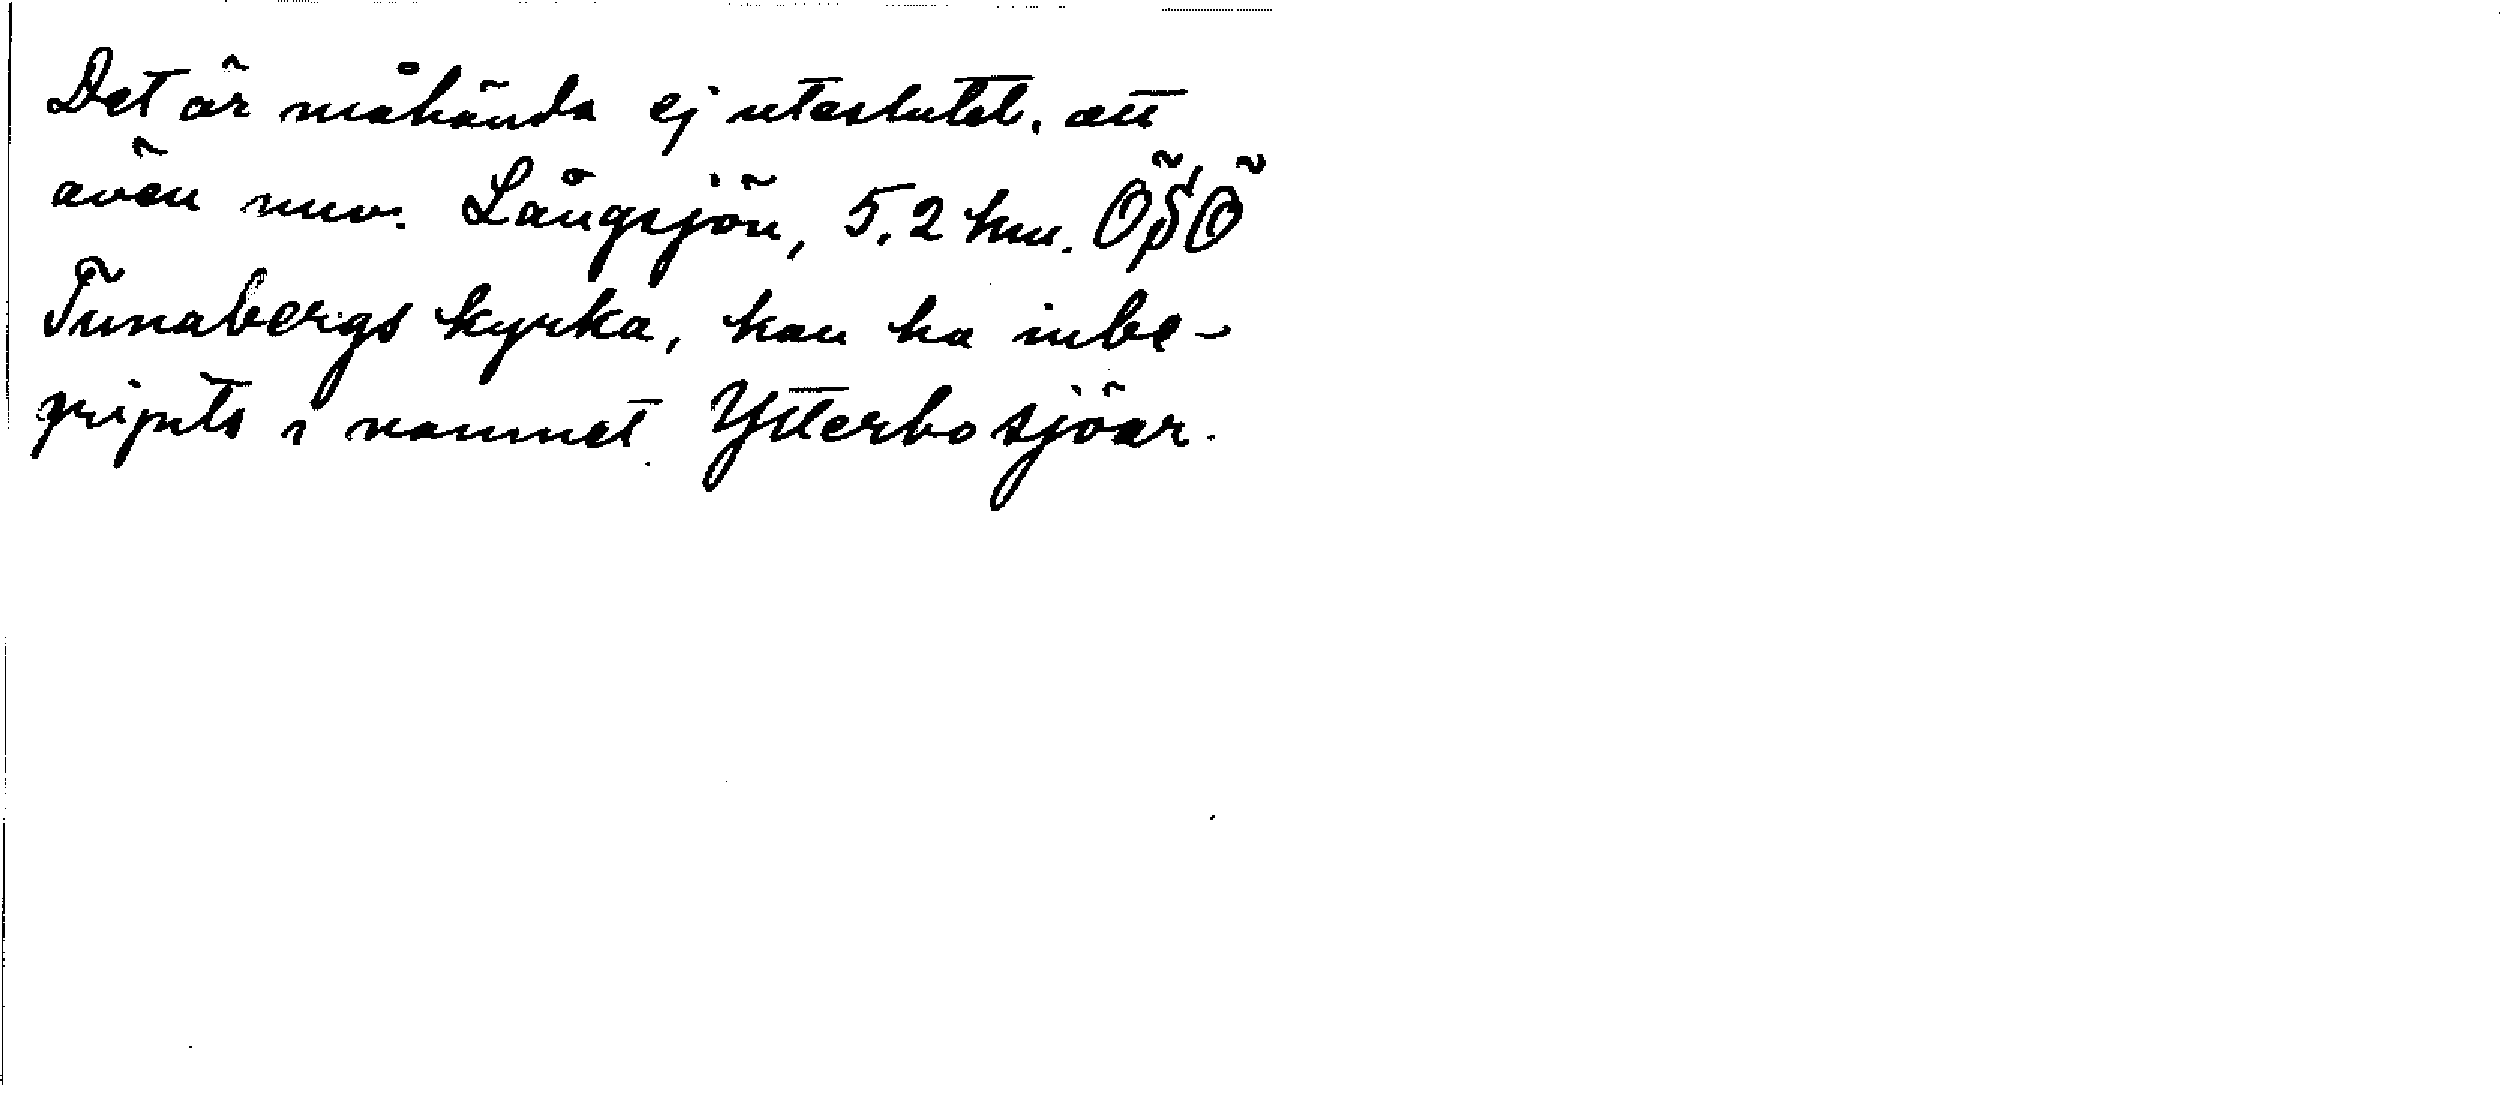 Det är måhända ej uteslutet, att
även nuv. Långsjön, 5,2 km. ÖSÖ
Tunabergs kyrka, kan ha inbe-
gripits i namnet Ytterbosjöar.